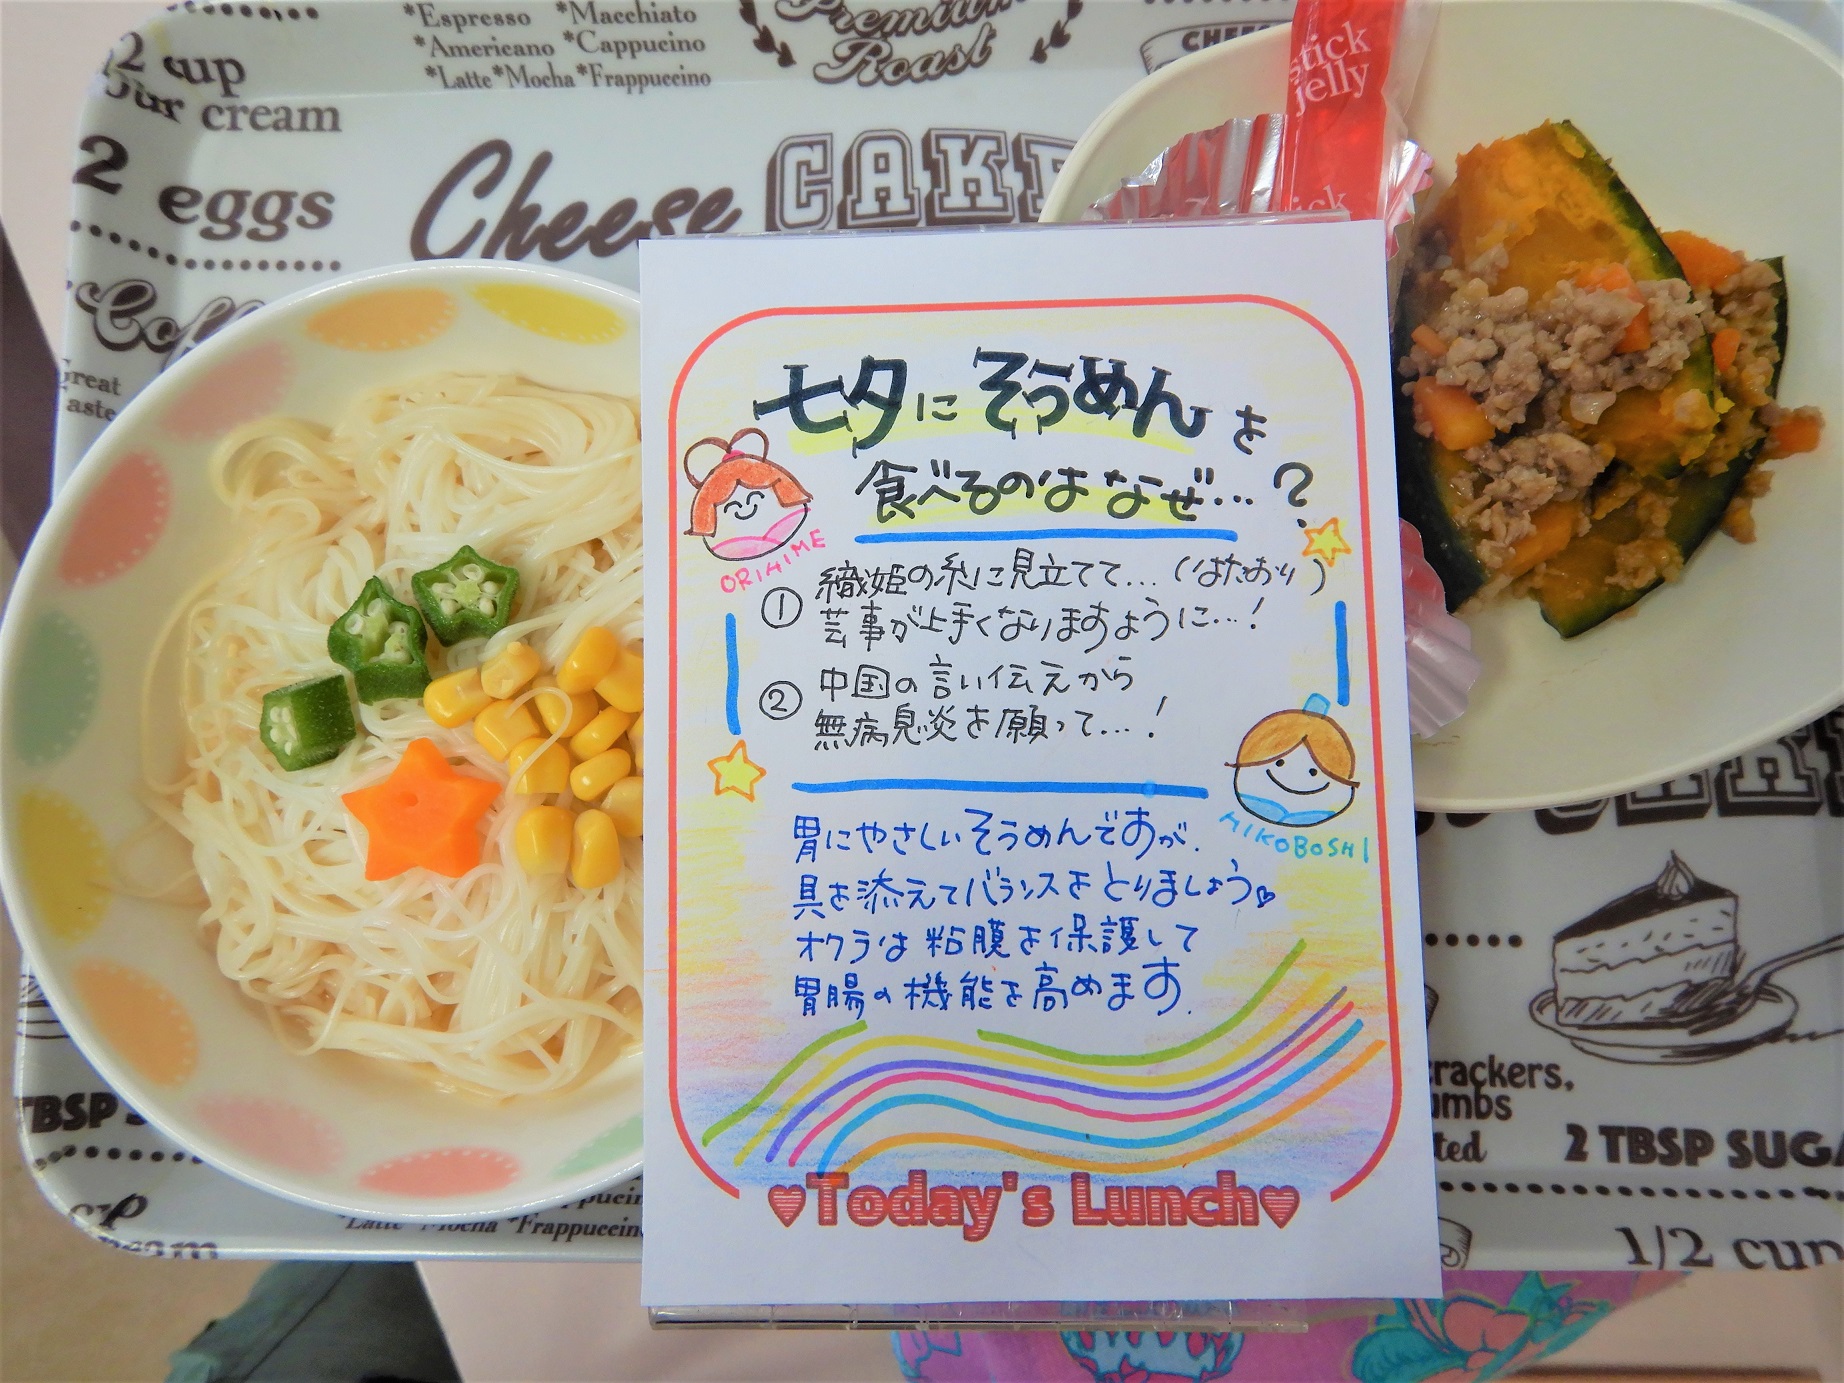 *Espresso *Macchiato
*Americano *Cappucino
*Latte*Mocha*Frappuccino
Premium
Roast
cup
our cream
2 eggs
Cheese CAKE
Great
aste
stick
jelly
七夕にそうめんを
食べるのはなぜ…?
ORIHIME
① 織姫の糸に見立てて…(はたおり)
芸事が上手くなりますように…!
② 中国の言い伝えから
無病息炎を願って…!
HIKOBOSHI
胃にやさしいそうめんですが、
具を添えてバランスをとりましょう♡
オクラは粘膜を保護して
胃腸の機能を高めます.
♥Today's Lunch♥
crackers,
umbs
ted
2 TBSP SUGA
TBSP S
*Latte *Mocha *Frappuccino
1/2 cup